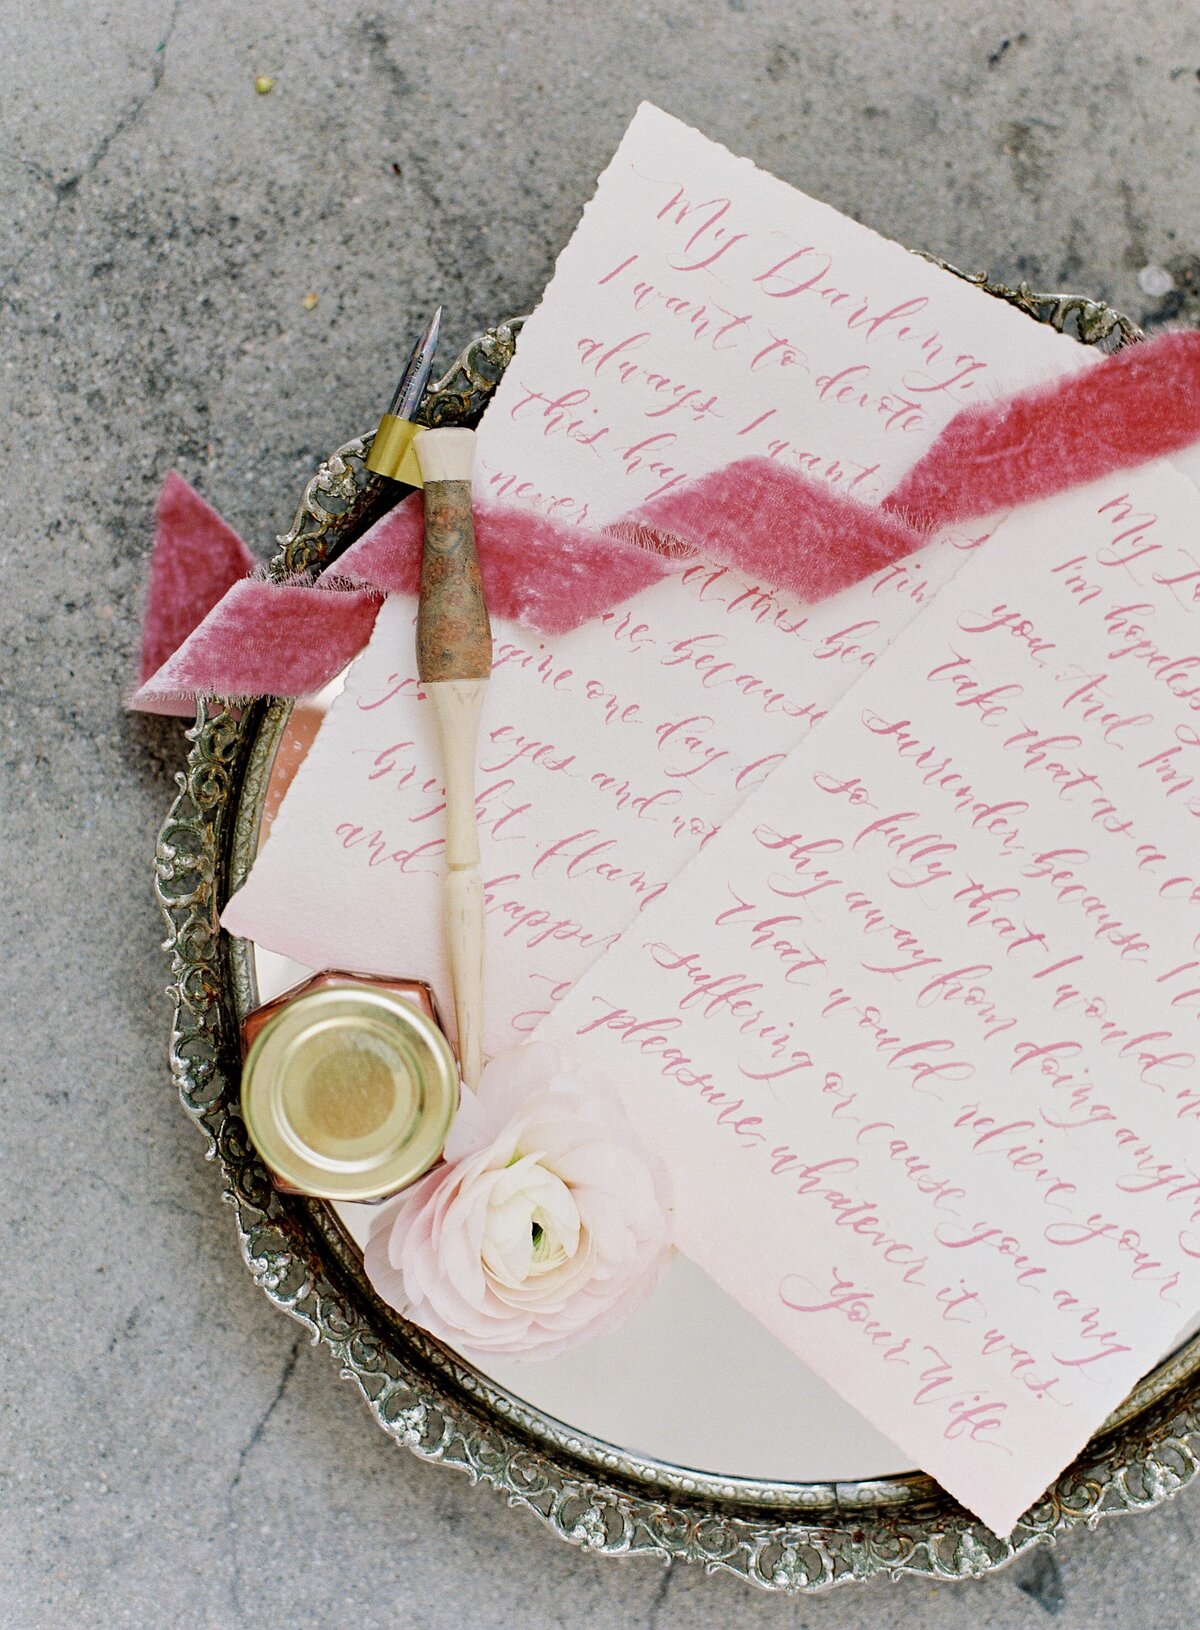 My Darling,
I want to devote
always, I want
this
never
time
this
because
one day
eyes and not
bright
and happy
My
I'm
you. And I'm
take that as a
surrender, because I
so fully that I would
shy away from doing
that would relieve your
suffering or cause you any
pleasure, whatever it was.
your Wife